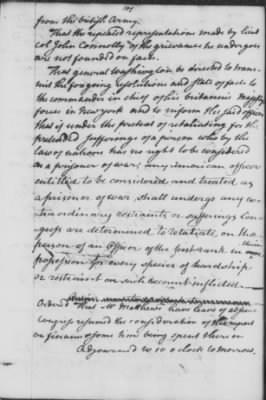 from the british Army.
That the repeated representations made by lieut
col. John Connolly of the grievances he undergoes
are not founded on facts.
That general Washington be directed to trans-
mit the foregoing resolutions and state of facts to
the commander in chief of his britannic majesty's
forces in New york and to inform the said officer
that if under the pretext of retaliating for the
pretended sufferings of a person who by the
law of nations has no right to be considered
as a prisoner of war, any american officer
entitled to be considered and treated as
a prisoner of war, shall undergo any ex-
tra ordinary restraints or sufferings Con-
gress are determined to retaliate, on the
person of an Officer of the first rank in their
possession for every species of hardship
or restraint on such account inflicted
Ordered That Mr Matthews have leave of absence
Congress resumed the consideration of the report
on finance & some time being spent thereon
Adjourned to 10 o clock to morrow.